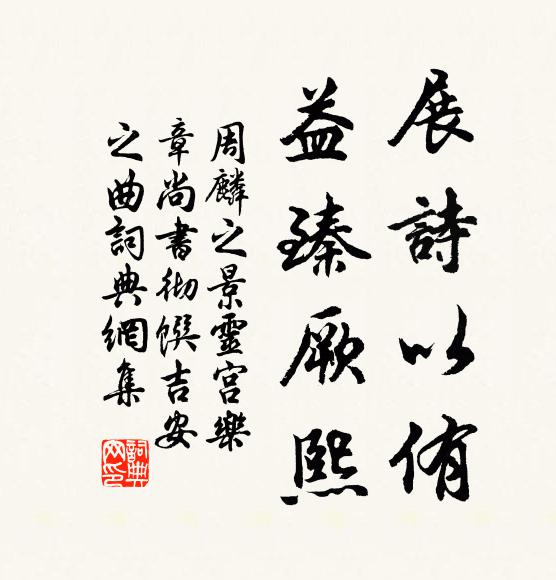 展詩以侑
益臻厥熙
周麟之景靈宮樂
章尚書彻饌吉安
之曲詞典網集
詞典
网印